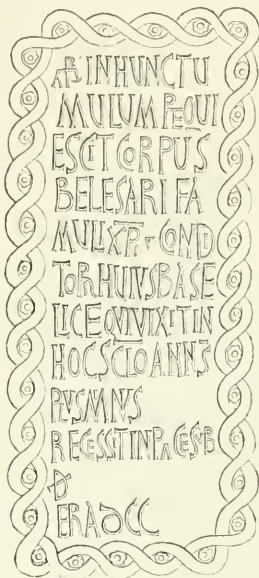 INHUNCTU
MULUM REQUI
ESCIT CORPUS
BELESARI FA
MULI XPI CONDI
TORHUIUSBASE
LICE QUIVIXIT IN
HOC SCLO ANNS
PUSMNS
RECESSIT IN PACESUB
D
ERA DCC